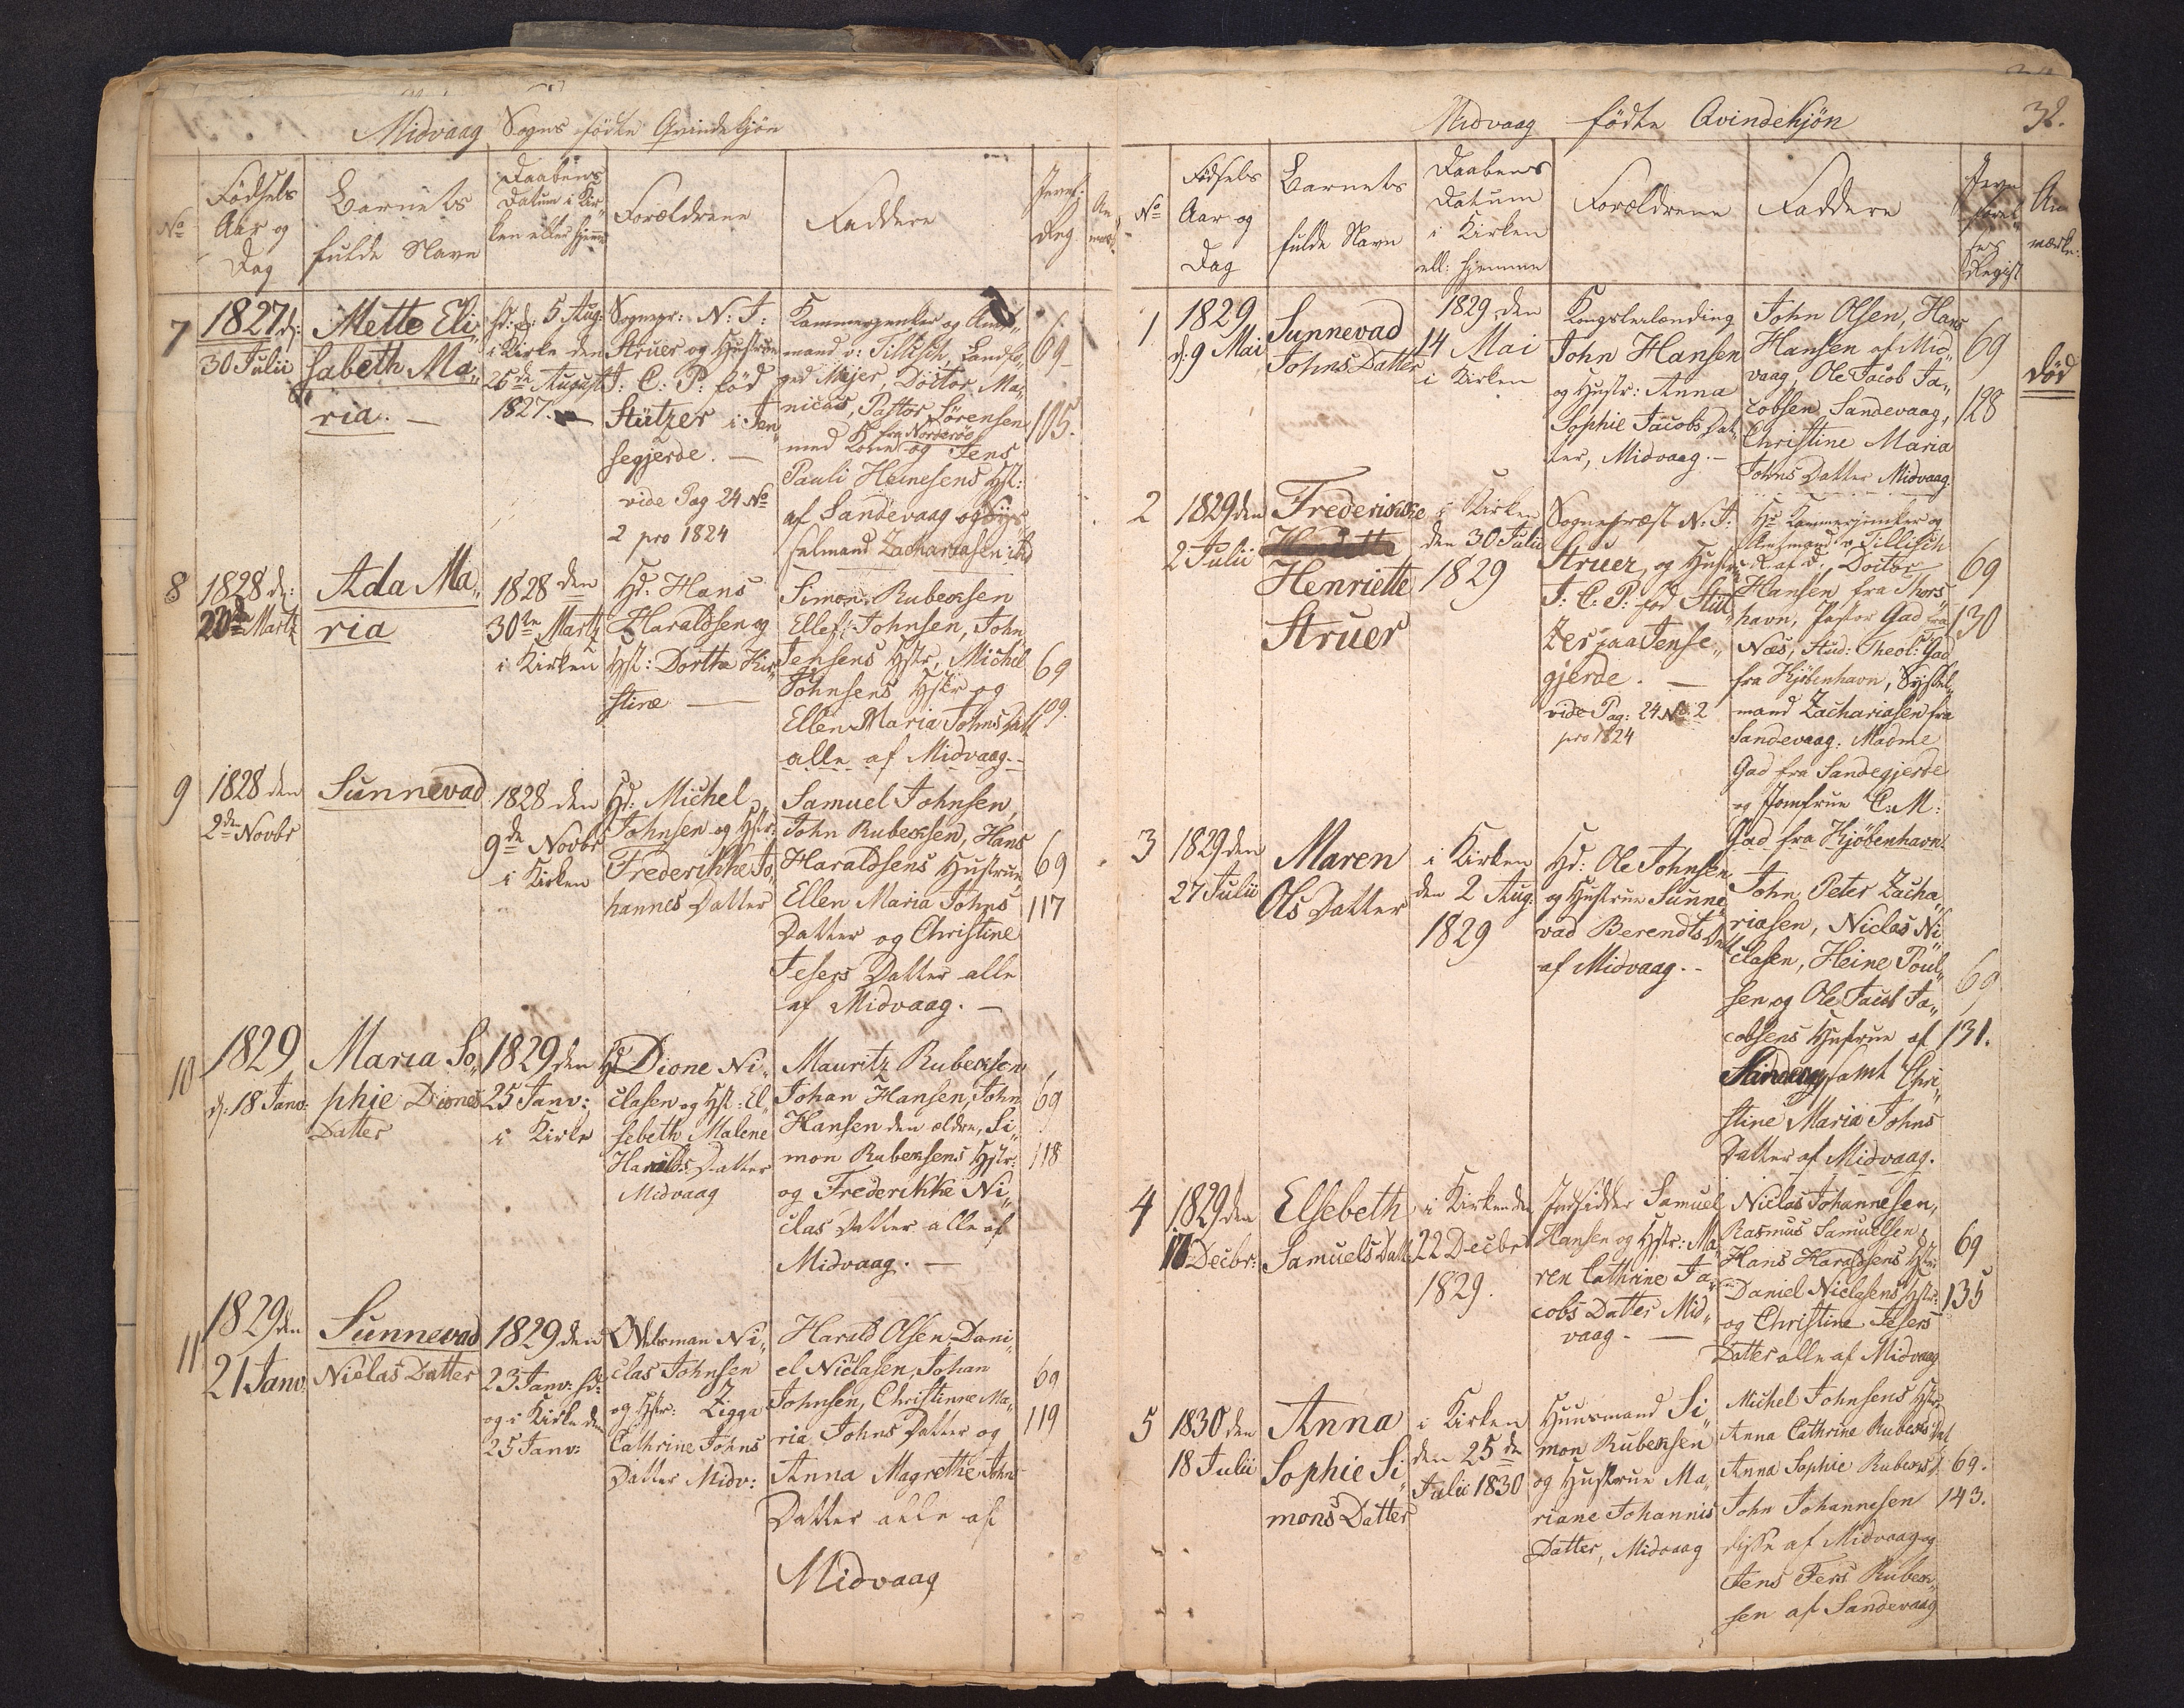 Midvaag Sogns fødte Qvindekjön
No
Födsels
Aar og
Dag
Barnets
fulde Navn
Daabens
Datum i Kir-
ken eller hjemme
Forældrene
Faddere
Jevnf:
Reg.
An
mærk
7
1827 d:
30 Julii
Mette Eli„
sabeth Ma„
ria. —
hd: d: 5 Aug:
i Kirke den
26de August
1827.
Sognepr: N: J:
Struer og Hustrue
J: C: P: föd
Stützer i Jen„
segjerde. —
vide Pag 24 No
2 pro 1824
Kammerjunker og Amt„
mand v: Tillisch, Landfo„
ged Mejer, Doctor Ma„
nicus, Pastor Sörensen
fra Norderöe
med Kone og Jens
Pauli Heinesens Hst:
af Sandevaag og Sys„
selmand Zachariasen ibd
69
105.
8
1828 d:
20de Martz
Ada Ma„
ria
1828 den
30te Martz
i Kirken
Hd: Hans
Haraldsen og
Hst: Dorthe Kir„
stine —
Simon Rubeksen
Ellef Johnsen, John
Jensens Hstr, Michel
Johnsens Hstr og
Ellen Maria Johns Datt
alle af Midvaag. —
69
109.
9
1828 den
2de Novbr
Sunnevad
1828 den
9de Novbr
i Kirken
Hd: Michel
Johnsen og Hstr:
Frederikke Jo„
hannes Datter
Samuel Johnsen,
John Rubeksen, Hans
Haraldsens Hustrue,
Ellen Maria Johns
Datter og Christine
Jesers Datter alle
af Midvaag. —
69
117
10
1829
d: 18 Janv:
Maria So„
phie Diones
Datter
1829 den
25 Janv:
i Kirke
Hd Dione Ni„
clasen og Hst: El„
sebeth Malene
Haralds Datter
Midvaag
Mauritz Rubeksen
Johan Hansen, John
Hansen den ældre, Si„
mon Rubeksens Hstr:
og Frederikke Ni„
clas Datter alle af
Midvaag. —
69
118
11
1829 den
21 Janv.
Sunnevad
Niclas Datter
1829 den
23 Janv: hd:
og i Kirke den
25 Janv:
Odelsman Ni„
clas Johnsen
og Hstr: Zigga
Cathrine Johns
Datter Midv:
Harald Olsen, Dani„
el Niclasen, Johan
Johnsen, Christinne Ma„
ria Johns Datter og
Anna Magrethe John
Datter alle af
Midvaag
69
119
Midvaag fødte Qvindekjön
32.
No
Födsels
Aar og
Dag
Barnets
fulde Navn
Daabens
Datum
i Kirken
ell: hjemme
Forældrene
Faddere
Jevn
förel„
ses
Regist
An
mærkn:
1
1829
d: 9 Mai
Sunnevad
Johns Datter
1829 den
14 Mai
i Kirken
Kongsleilænding
John Hansen
og Hustr: Anna
Sophie Jacobs Dat„
ter, Midvaag. —
John Olsen, Hans
Hansen af Mid„
vaag, Ole Jacob Ja„
cobsen Sandevaag,
Christine Maria
Johns Datter Midvaag.
69
128
död
2
1829 den
2 Julii
Frederikke
Henriette
Struer
i Kirken
den 30 Julii
1829
Sognepræst N: J:
Struer, og Hustrue
J: C: P: föd Stüt„
zer paa Jense„
gjerde. —
vide Pag: 24 No 2
pro 1824
Hr Kammerjunker og
Amtmand v. Tillisch
R af D., Doctor
Hansen fra Thors„
havn, Pastor Gad fra
Næs, Stud: Theol: Gad
fra Kjöbenhavn, Syssel„
mand Zachariasen fra
Sandevaag. Madme
Gad fra Sandegjerde
og Jomfrue C: M:
Gad fra Kjöbenhavn.
69
130
3
1829 den
27 Julii
Maren
Ols Datter
i Kirken
den 2 Aug.
1829
Hd: Ole Johnsen
og Hustrue Sunne„
vad Berendts Datt
af Midvaag. —
John Peter Zacha„
riasen, Niclas Ni„
clasen, Heine Poul„
sen og Ole Jacob Ja„
cobsens Hustrue af
Sandevaag samt Chri„
stine Maria Johns
Datter af Midvaag.
69
131.
4
1829 den
16 Decbr:
Elsebeth
Samuels Datt
i Kirken den
22 Decbr
1829.
Indsidder Samuel
Hansen og Hstr: Ma„
ren Cathrine Ja„
cobs Datter Mid„
vaag. —
Niclas Johannesen,
Rasmus Samuelsen,
Hans Haraldsens Hstr
Daniel Niclasens Hstr:
og Christine Jesers
Datter alle af Midvaag
69
135
5
1830 den
18 Julii
Anna
Sophie Si„
mons Datter
i Kirken
den 25de
Julii 1830
Huusmand Si„
mon Rubeksen
og Hustrue Ma„
riane Johannis
Datter, Midvaag
Michel Johnsens Hstr
Anna Cathrine Rubeks Dat
Anna Sophie Rubeks D
John Johannesen
disse af Midvaag og
Jens Fers Rubek„
sen af Sandevaag
69.
143.